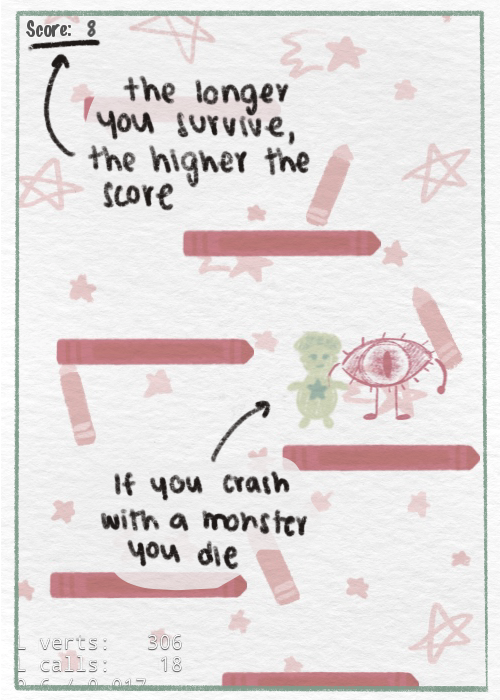 Score: 8
the longer
you survive,
the higher the
score
If you crash
with a monster
you die
L verts: 306
L calls: 18